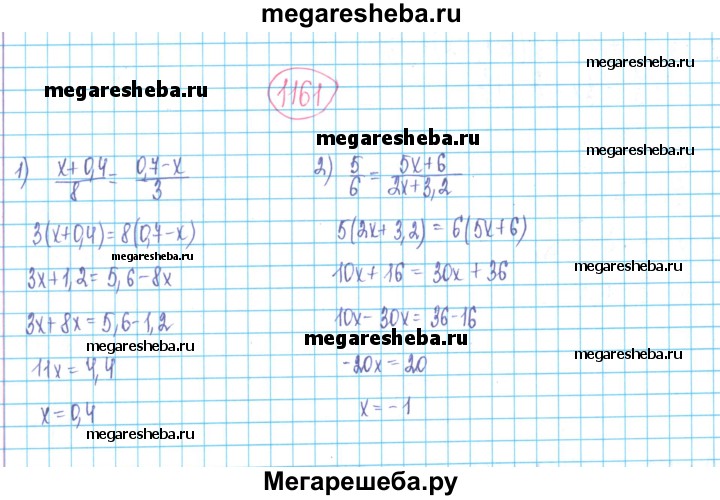 megaresheba.ru
megaresheba.ru
megaresheba.ru
1161
megaresheba.ru
1) (x+0,4)/8 = (0,7-x)/3
2) 5/6 = (5x+6)/(2x+3,2)
3(x+0,4)=8(0,7-x)
5(2x+3,2)=6(5x+6)
megaresheba.ru
megaresheba.ru
3x+1,2=5,6-8x
10x+16=30x+36
3x+8x=5,6-1,2
10x-30x=36-16
megaresheba.ru
megaresheba.ru
megaresheba.ru
11x=4,4
-20x=20
x=0,4
x=-1
megaresheba.ru
Мегарешеба.ру